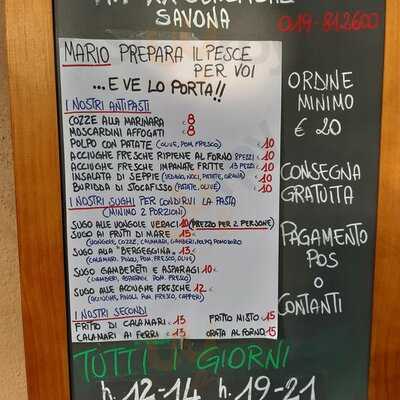 SAVONA
019-812600
MARIO PREPARA IL PESCE
PER VOI
...E VE LO PORTA!!
I NOSTRI ANTIPASTI
COZZE ALLA MARINARA € 8
MOSCARDINI AFFOGATI € 8
POLPO CON PATATE (OLIVE, POM. FRESCO) € 10
ACCIUGHE FRESCHE RIPIENE AL FORNO 8 PEZZI € 10
ACCIUGHE FRESCHE IMPANATE FRITTE 13 PEZZI € 10
INSALATA DI SEPPIE (SEDANO, NOCI, PATATE, GRANA) € 10
BURIDDA DI STOCAFISSO (PATATE, OLIVE) € 10
I NOSTRI SUGHI PER CONDIRVI LA PASTA
(MINIMO 2 PORZIONI)
SUGO ALLE VONGOLE VERACI 10 (PREZZO PER 2 PERSONE)
SUGO AI FRUTTI DI MARE 15 €
(VONGOLE, COZZE, CALAMARI, GAMBERI, POLPO, POMODORO
SUGO ALLA "BERGEGGINA" € 13
(CALAMARI, PINOLI, POM. FRESCO, OLIVE)
SUGO GAMBERETTI E ASPARAGI 10 €
(GAMBERI, ASPARAGI, POM. FRESCO)
SUGO ALLE ACCIUGHE FRESCHE 12 €
(ACCIUGHE, PINOLI, POM. FRESCO, CAPPERI)
I NOSTRI SECONDI
FRITTO DI CALAMARI € 13 FRITTO MISTO € 15
CALAMARI AI FERRI € 13 ORATA AL FORNO € 15
TUTTI I GIORNI
h. 12-14 h. 19-21
ORDINE
MINIMO
€ 20
CONSEGNA
GRATUITA
PAGAMENTO
POS
O
CONTANTI